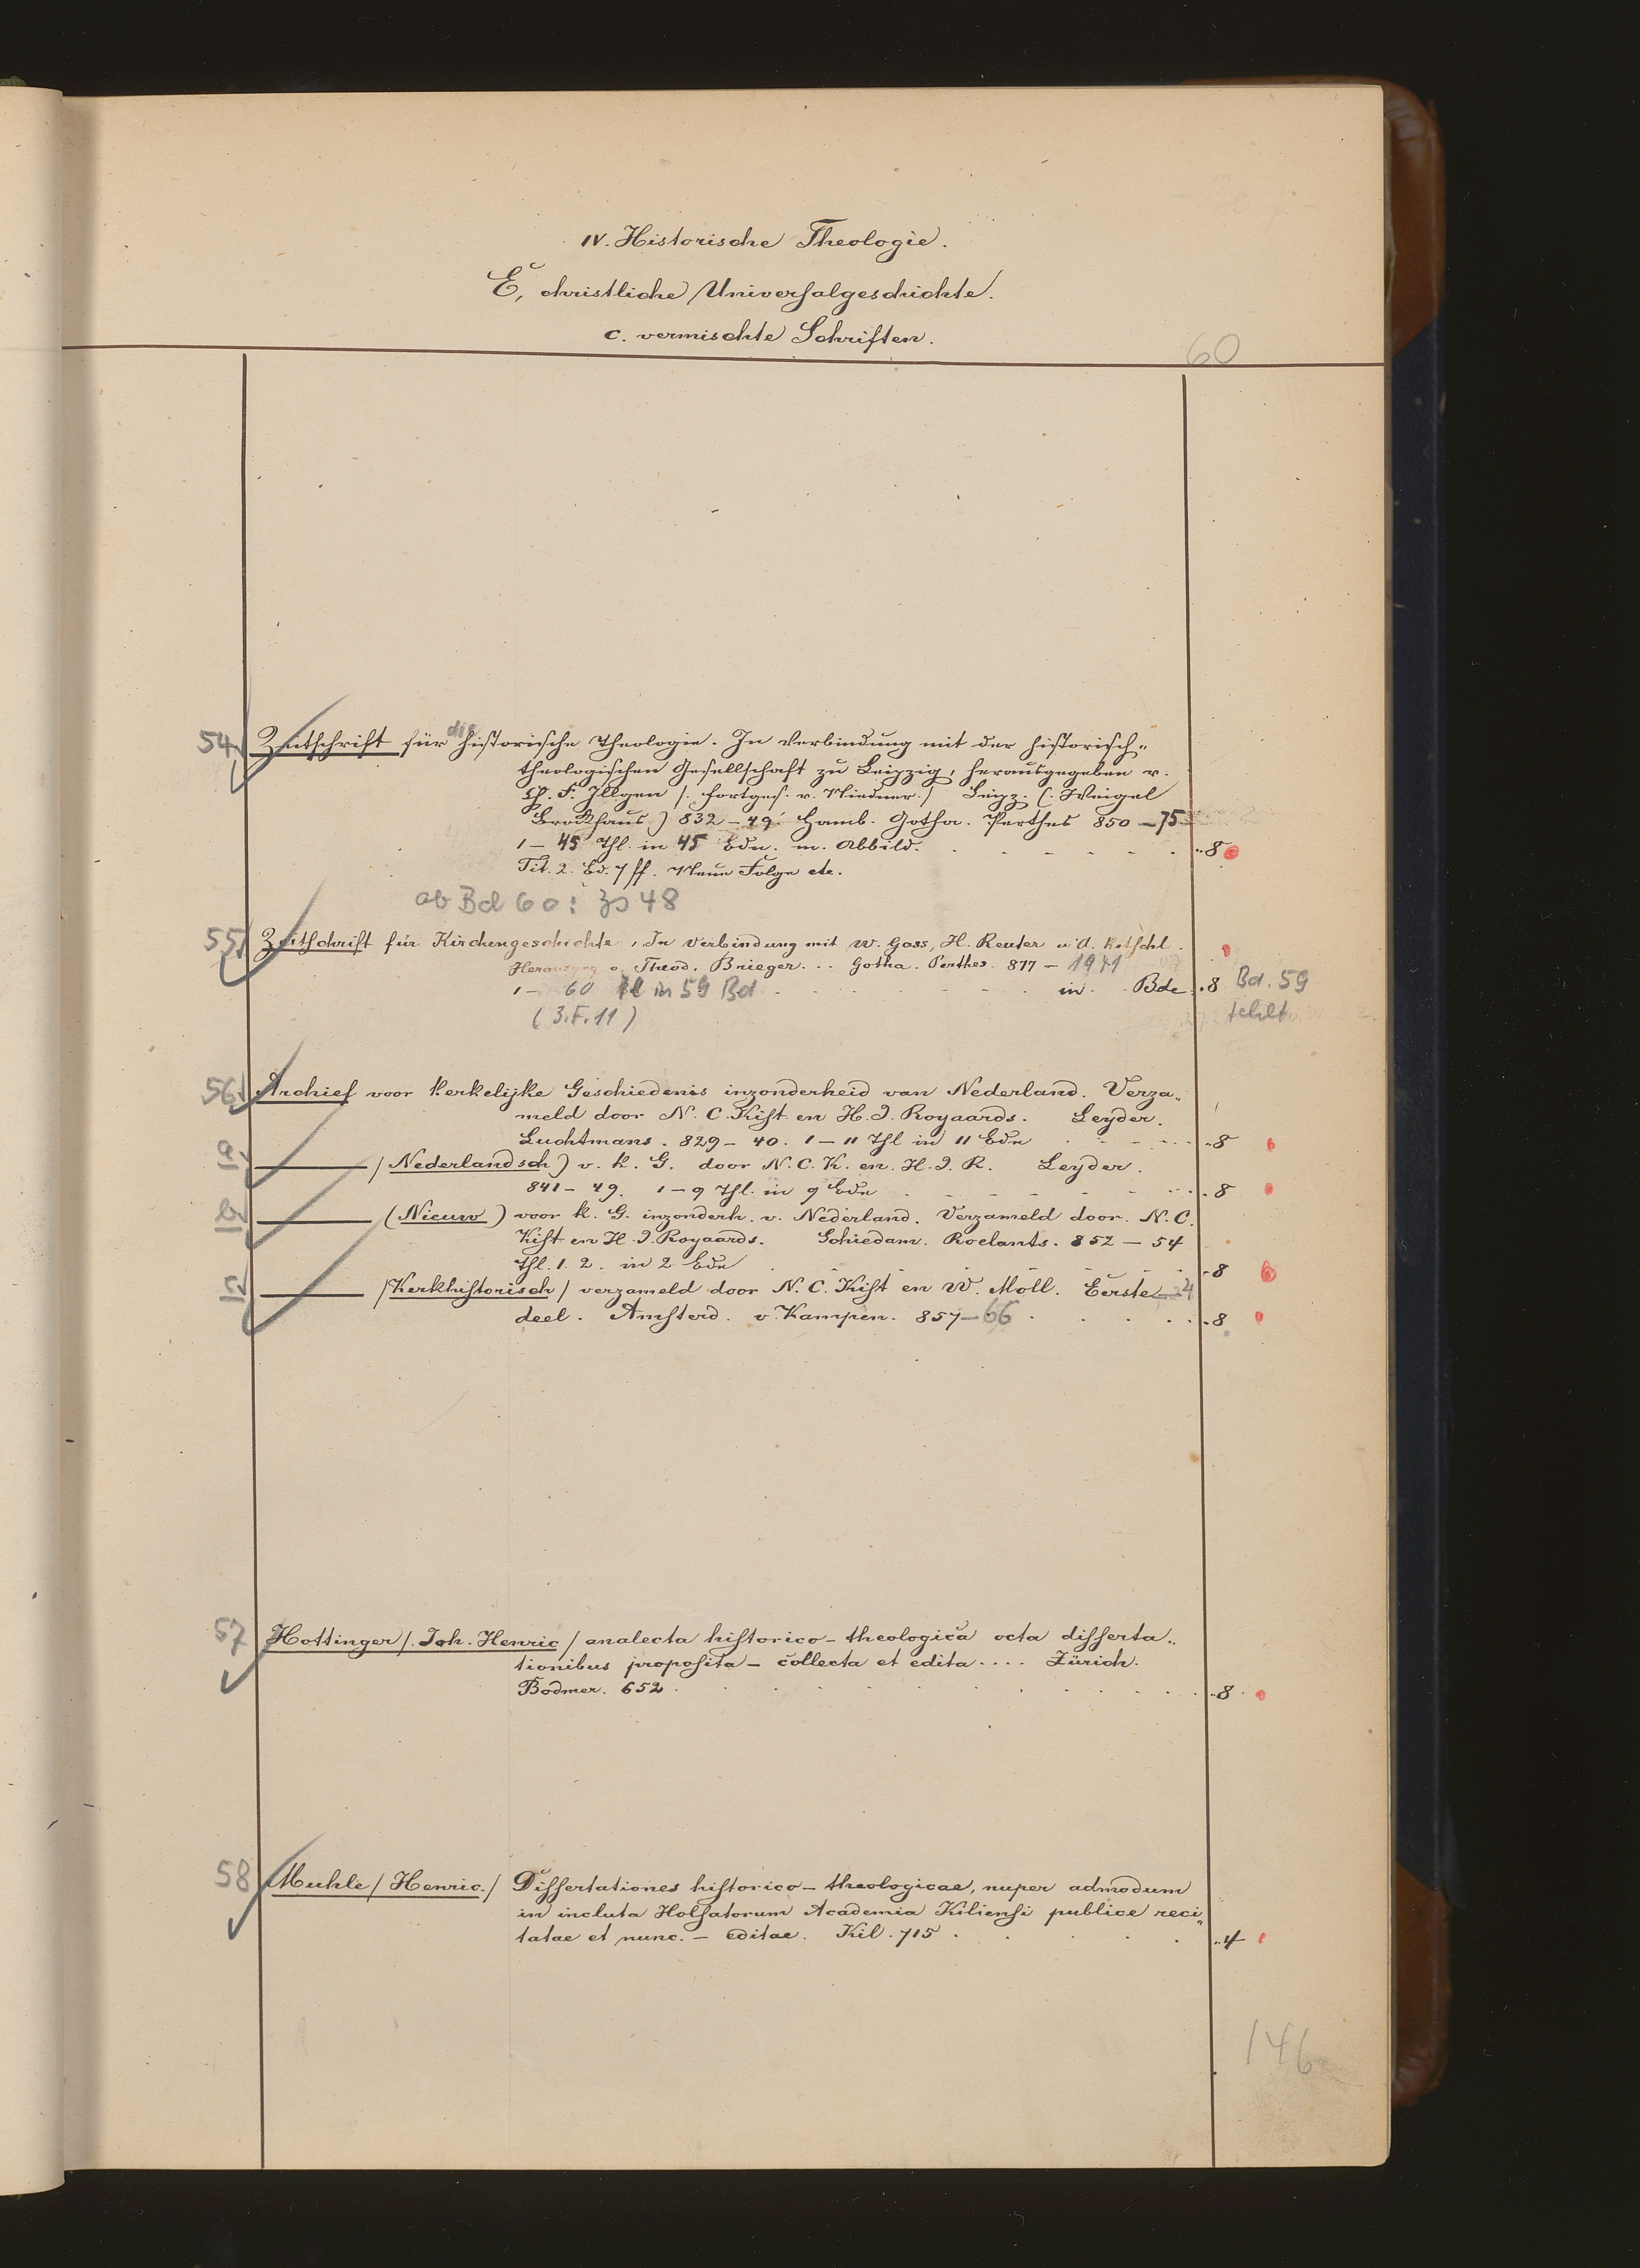 IV. Historische Theologie.
E, christliche Universalgeschichte.
c. vermischte Schriften.
60
54 Zeitschrift für die historische Theologie. In Verbindung mit der historisch-
theologischen Gesellschaft zu Leipzig, herausgegeben v.
Ch. F. Illgen /. fortges. v. Niedner./ Leipz. (. Weigel
Brockhaus) 832-49. Hamb. Gotha. Perthes 850-75
1-45 Thl. in 45 Bdn. m. Abbild. 8
Tit. 2. Bd. 7 ff. Neue Folge etc.
ab Bd 60: Zs 48
55 Zeitschrift für Kirchengeschichte, In Verbindung mit W. Gass, H. Reuter u. A. Ritschl.
Herausgeg. v. Theod. Brieger... Gotha. Perthes. 877-1941
1- 60 in 59 Bd in Bde 8 Bd. 59
(3.F.11) fehlt
56 Archief voor kerkelijke Geschiedenis inzonderheid van Nederland. Verza-
meld door N. C. Kist en H. J. Royaards. Leyder.
Luchtmans. 829-40. 1-11 Thl in 11 Bdn 8
a ——— / Nederlandsch) v. k. G. door N. C. K. en. H. J. R. Leyder.
841-49. 1-9 Thl. in 9 Bdn 8
b ——— (Nieuw) voor k. G. inzonderh. v. Nederland. Verzameld door. N. C.
Kist en H. J. Royaards. Schiedam. Roelants. 852-54
Thl. 1. 2. in 2 Bdn 8
c ——— /Kerkhistorisch/ verzameld door N. C. Kist en W. Moll. Eerste-4
deel. Amsterd. v. Kampen. 857-66 8
57 Hottinger /. Joh. Henric / analecta historico-theologica octa disserta-
tionibus proposita- collecta et edita.... Zürich.
Bodmer. 652 8
58 Muhle / Henric. / Dissertationes historico-theologicae, nuper admodum
in incluta Holsatorum Academia Kiliensi publice reci-
tatae et nunc.- editae. Kil. 715 4
146